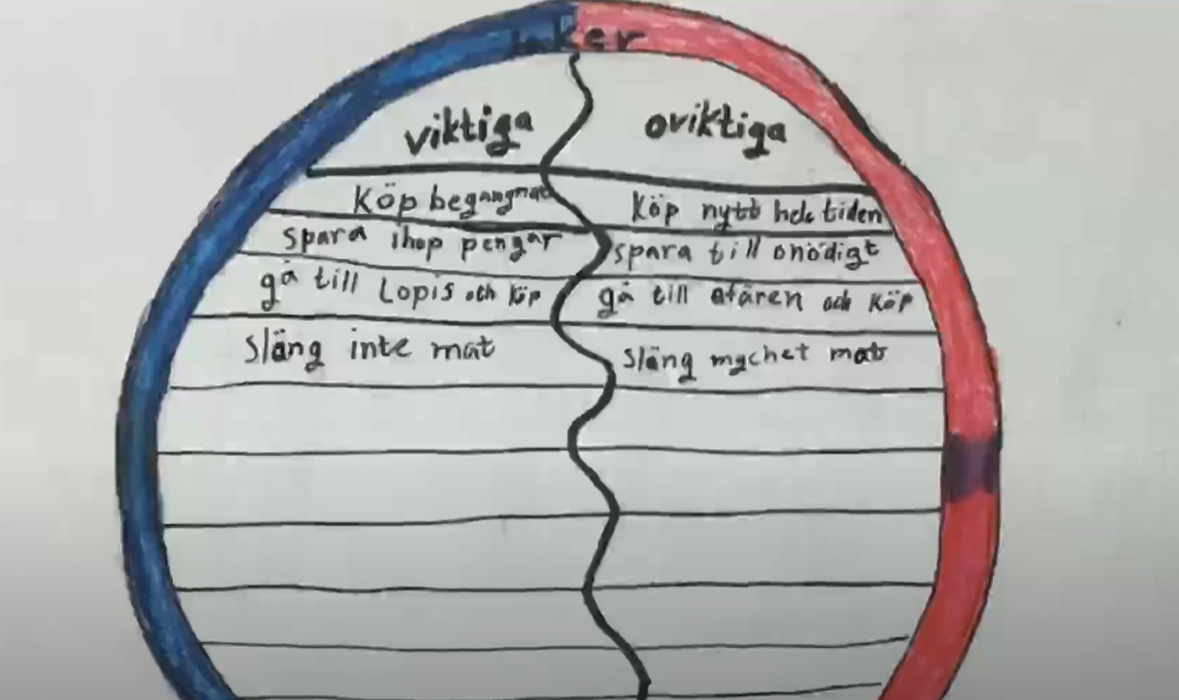 viktiga
oviktiga
Köp begangnat
Köp nytt hela tiden
spara ihop pengar
spara till onödigt
gå till Lopis och köp
gå till afären och Köp
Släng inte mat
släng mychet mat